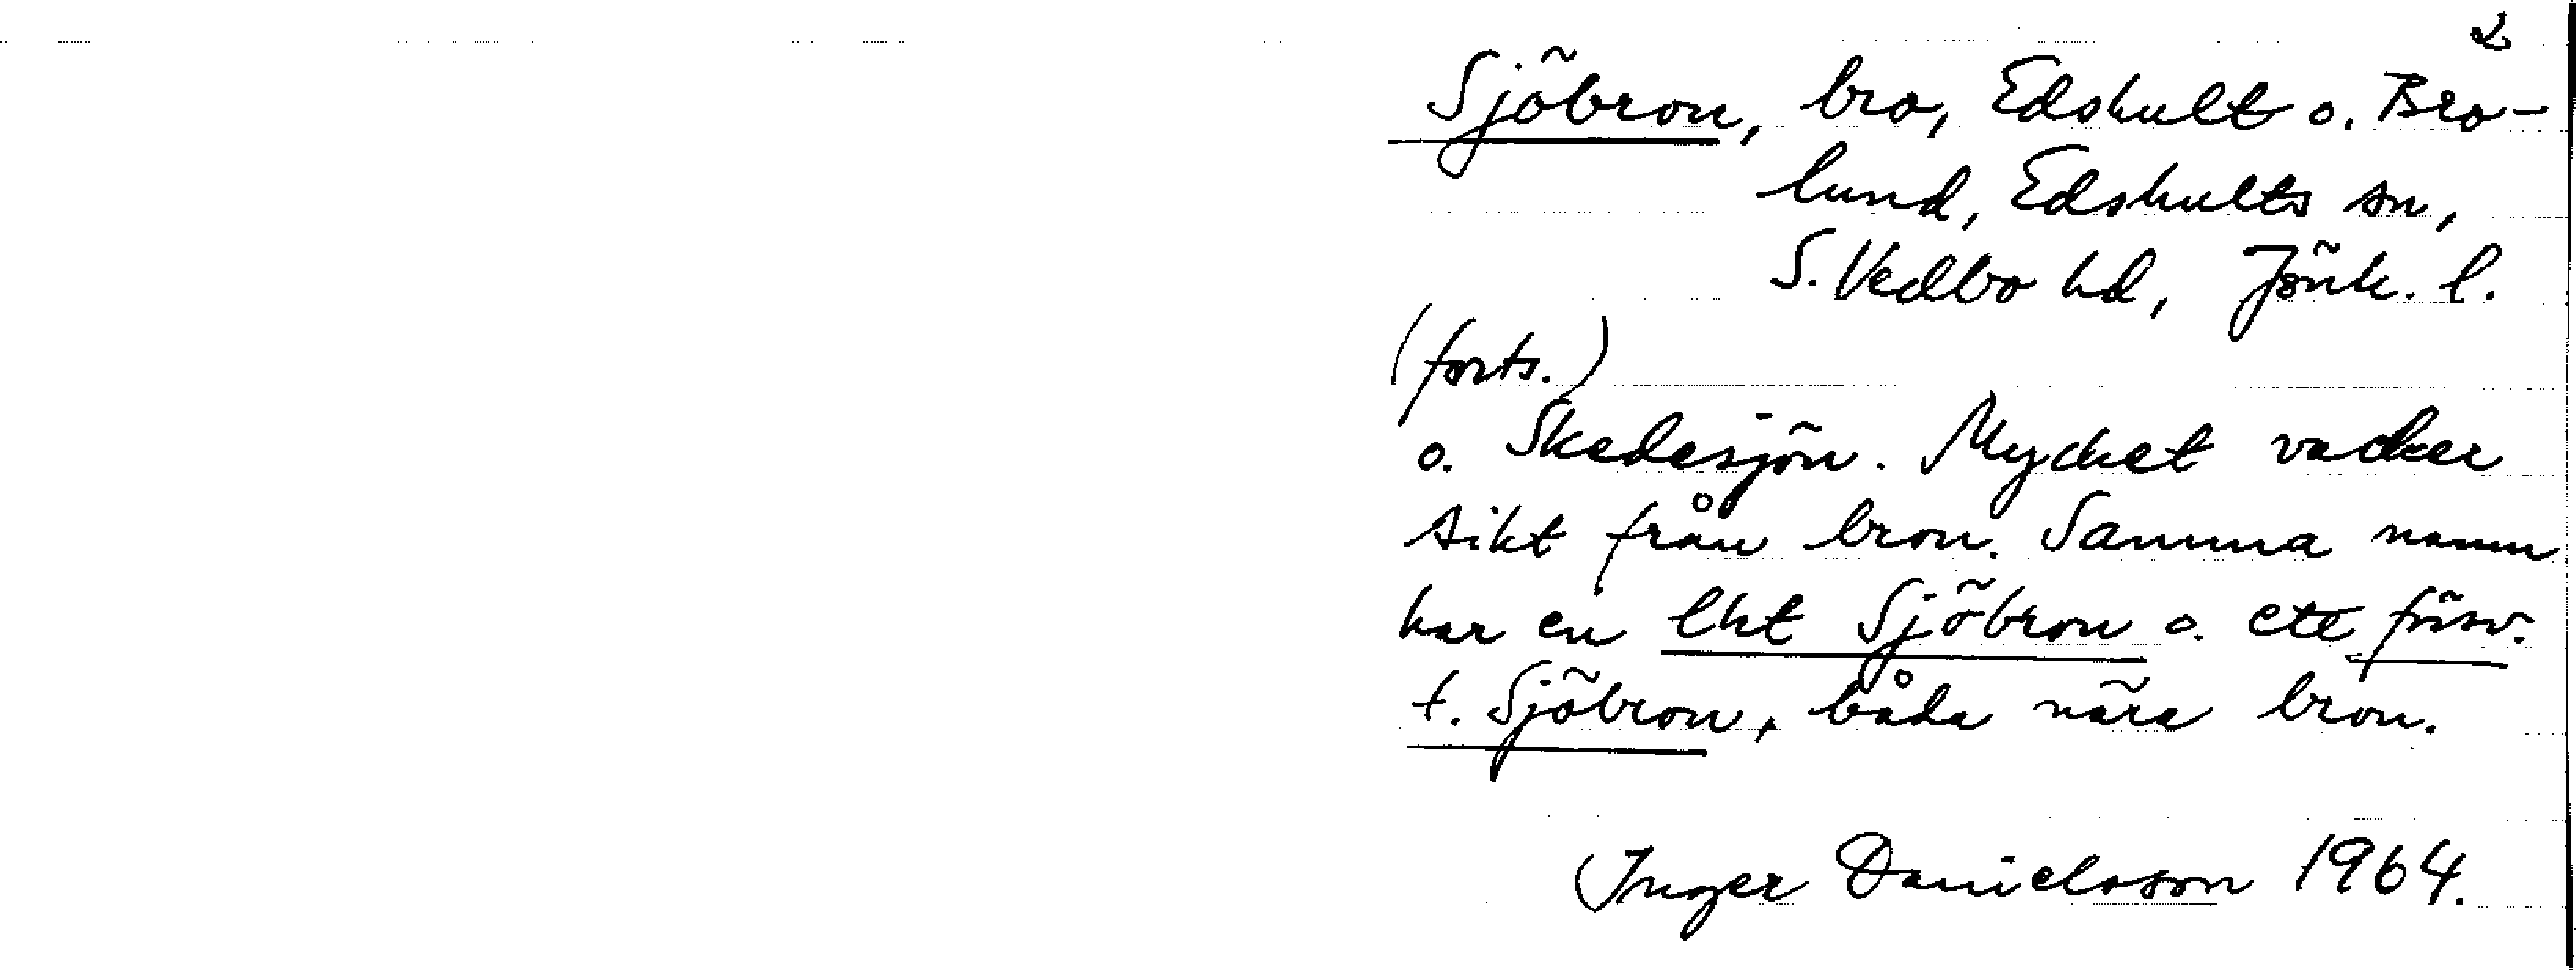 2
Sjöbron, bro, Edshult o. Bro-
lund, Edshults sn,
S. Vedbo hd, Jönk. l.
(forts.)
o. Skedesjön. Mycket vacker
sikt från bron. Samma namn
har en lht Sjöbron o. ett försv.
t. Sjöbron, båda nära bron.
Inger Danielsson 1964.